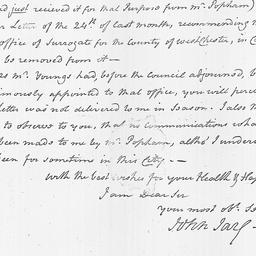 ed just recieved it for that Purpose from Mr. Popham)
r Letter of the 24th of last month, recommending
office of Surrogate for the County of westchester, in C
be removed from it—
s mr. Youngs had, before the Council adjourned, b
imously appointed to that office, you will perce
letter was not delivered to me in Season. I also
to observe to you, that no communications wha
een made to me by mr. Popham, altho' I under
een for sometime in this City.—
with the best wishes for your Health & Hap
I am Dear Sir
your most obt. Se
John Jay.—